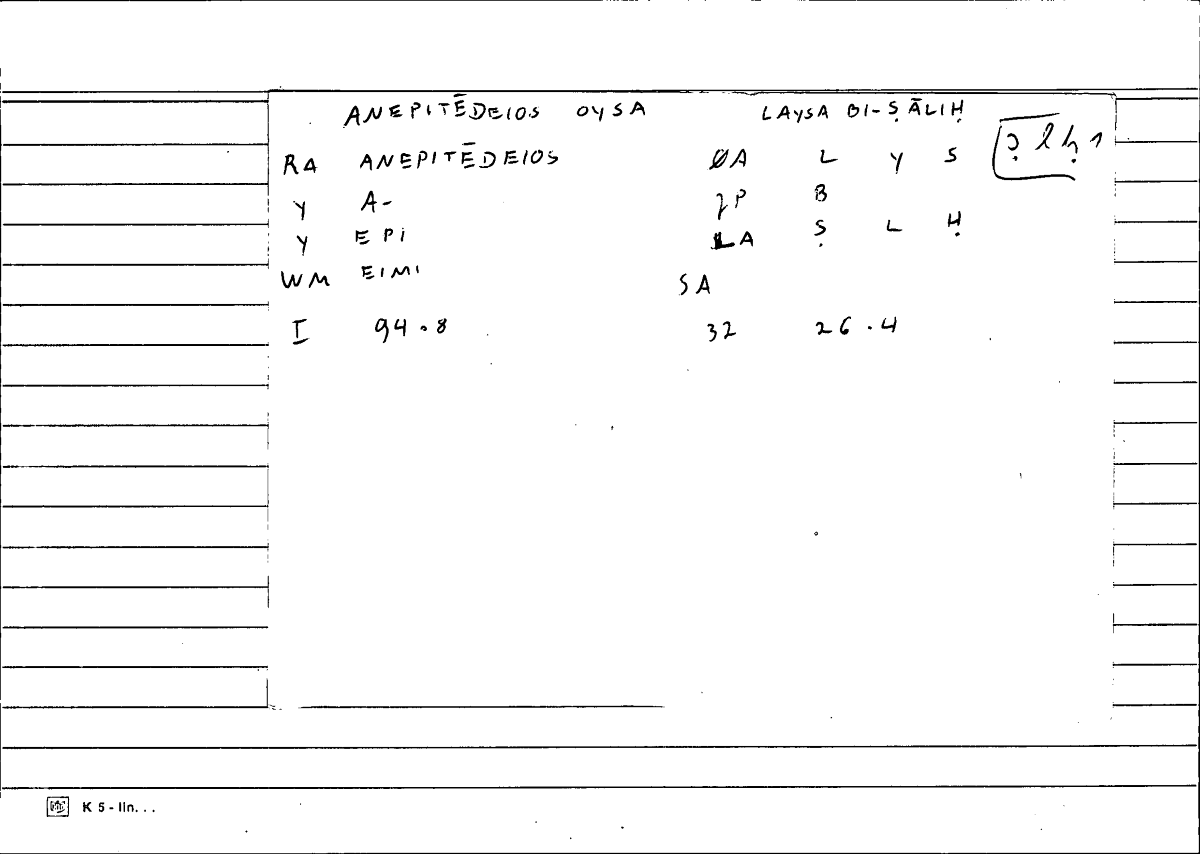 ANEPITĒDEIOS OYSA LAYSA BI-ṢĀLIḤ
RA ANEPITĒDEIOS ØA L Y S
Y A- JP B
Y EPI LA Ṣ L Ḥ
WM EIMI SA
I 94.8 32 26.4
K 5 - lin...